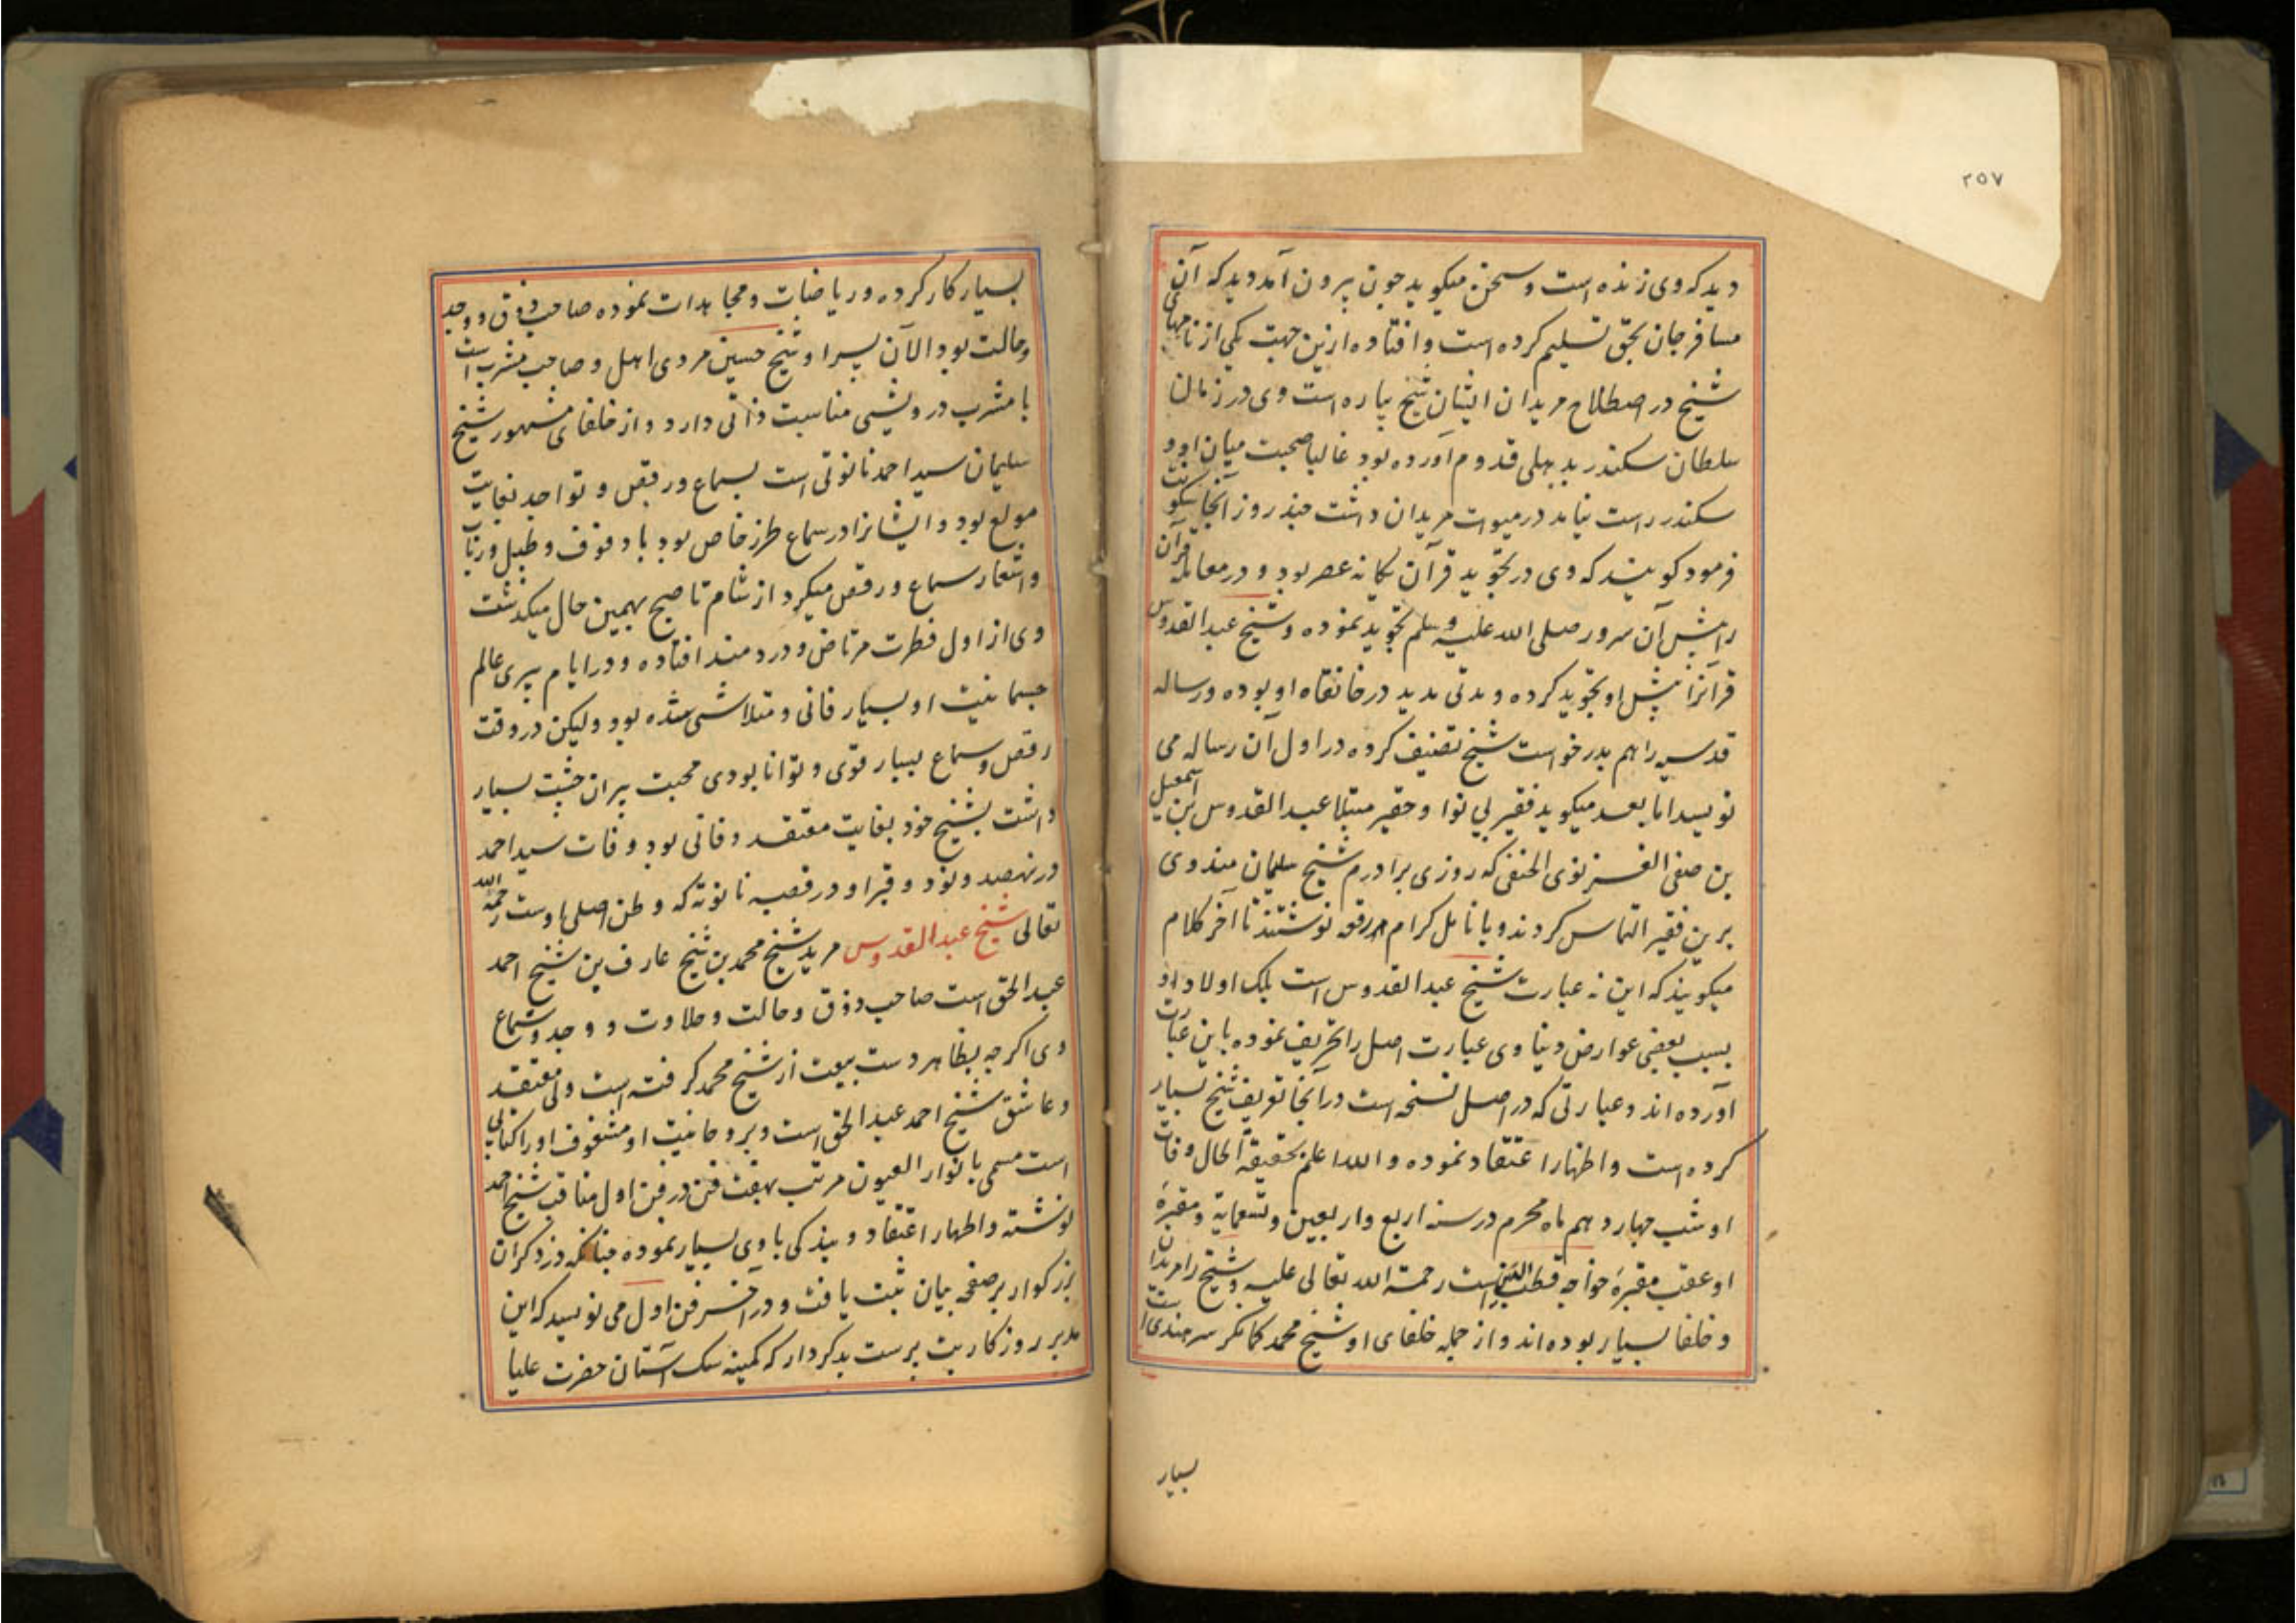 ۲۵۷
دید که وی زنده است و سخن میکوید چون بیرون آمد دید که آن
مسافر جان بحق تسلیم کرده است و افتاده ازین جهت یکی از نامهای
شیخ در اصطلاح مریدان ایشان شیخ پیاره است وی در زمان
سلطان سکندر بدهلی قدوم آورده بود غالبا صحبت میان او و
سکندر راست نیامد در میوات مریدان داشت چند روز آنجا سکونت
فرمود کویند که وی در تجوید قرآن یکانه عصر بود و در معامله قرآن
را پیش آن سرور صلی الله علیه وسلم تجوید نموده و شیخ عبدالقدوس
قرآنرا پیش او تجوید کرده و مدتی مدید در خانقاه او بوده و رساله
قدسیه را هم بدرخواست شیخ تصنیف کرده در اول آن رساله می
نویسد اما بعد میکوید فقیر بی نوا و حقیر مبتلا عبدالقدوس بن اسمعیل
بن صفی الغزنوی الحنفی که روزی برادرم شیخ سلیمان مندوی
برین فقیر التماس کردند و بانامل کرام رقعه نوشتند تا آخر کلام
میکویند که این نه عبارت شیخ عبدالقدوس است بلک اولاد او
بسبب بعضی عوارض دنیاوی عبارت اصل را تحریف نموده باین عبارت
آورده اند و عبارتی که در اصل نسخه است در آنجا تعریف شیخ بسیار
کرده است و اظهار اعتقاد نموده والله اعلم بحقیقة الحال وفات
او شب چهاردهم ماه محرم در سنه اربع واربعین وتسعمایة و مقبرهٔ
او عقب مقبرهٔ خواجه قطب الدین است رحمة الله تعالی علیه و شیخ را مریدان
و خلفا بسیار بوده اند و از جمله خلفای او شیخ محمد کمانکر سرهندی است
بسیار
بسیار کار کرده و ریاضات و مجاهدات نموده صاحب ذوق و وجد
وحالت بود الآن پسر او شیخ حسین مردی اهل و صاحب مشرب است
با مشرب درویشی مناسبت ذاتی دارد و از خلفای مشهور شیخ
سلیمان سید احمد نانوتی است بسماع و رقص و تواجد بغایت
مولع بود و ایشانرا در سماع طرز خاص بود با دفوف و طبل و رباب
و اشعار سماع و رقص میکرد از شام تا صبح بهمین حال میکذشت
وی از اول فطرت مرتاض و دردمند افتاده و در ایام پیری عالم
جسمانیت او بسیار فانی و متلاشی شده بود ولیکن در وقت
رقص و سماع بسیار قوی و توانا بودی محبت پیران چشت بسیار
داشت بشیخ خود بغایت معتقد و فانی بود وفات سید احمد
در نهصد و نود و قبر او در قصبه نانوته که وطن اصلی اوست رحمة الله
تعالی شیخ عبدالقدوس مرید شیخ محمد بن شیخ عارف بن شیخ احمد
عبدالحق است صاحب ذوق و حالت و حلاوت و وجد و سماع
وی اکرچه بظاهر دست بیعت از شیخ محمد کرفته است ولی معتقد
و عاشق شیخ احمد عبدالحق است و بروحانیت او مشغوف او را کتابی
است مسمی بانوار العیون مرتب بهفت فن در فن اول مناقب شیخ احمد
نوشته و اظهار اعتقاد و بندکی با وی بسیار نموده چنانکه در ذکر آن
بزرکوار بر صفحه بیان ثبت یافت و در آخر فن اول می نویسد که این
مدبر روزکار بت پرست بدکردار که کمینه سک آستان حضرت علیا